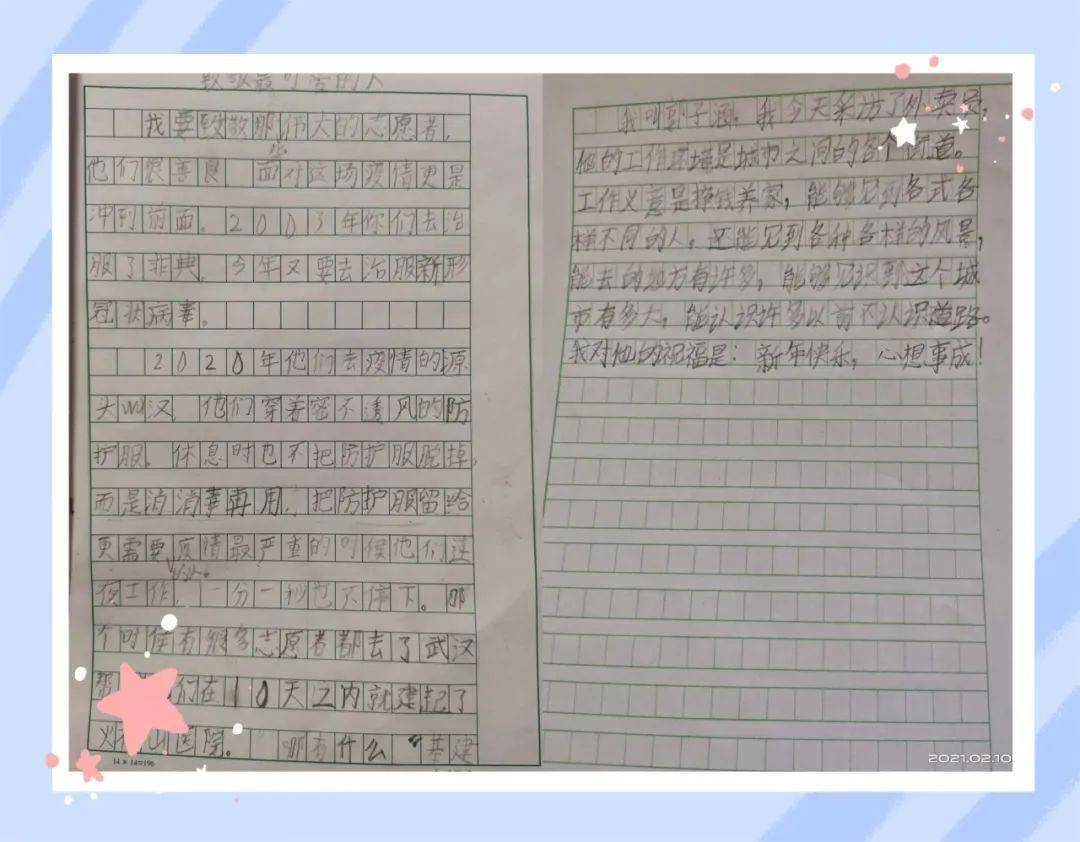 致敬最可爱的人
我要致敬那伟大的志愿者,
他们很善良,面对这场疫情更是
冲到前面。2003年你们去治
服了非典,今年又要去治服新形
冠状病毒。
2020年他们去疫情的原
头wu汉,他们穿着密不透风的防
护服。休息时也不把防护服脱掉,
而是消消毒再用,把防护服留给
更需要疫情最严重的时候他们连
夜工作,一分一秒也不停下。那
个时侯有很多志愿者都去了武汉
们在10天之内就建起了
火山医院。 哪有什么“基建
14×14=196
我叫郭子涵,我今天采访了外卖员,
他的工作环境是城市之间的各个街道。
工作义意是挣钱养家,能够见到各式各
样不同的人,还能见到各种各样的风景,
能去的地方有许多,能够见识到这个城
市有多大,能认识许多以前不认识道路。
我对他的祝福是:新年快乐,心想事成!
2021.02.10